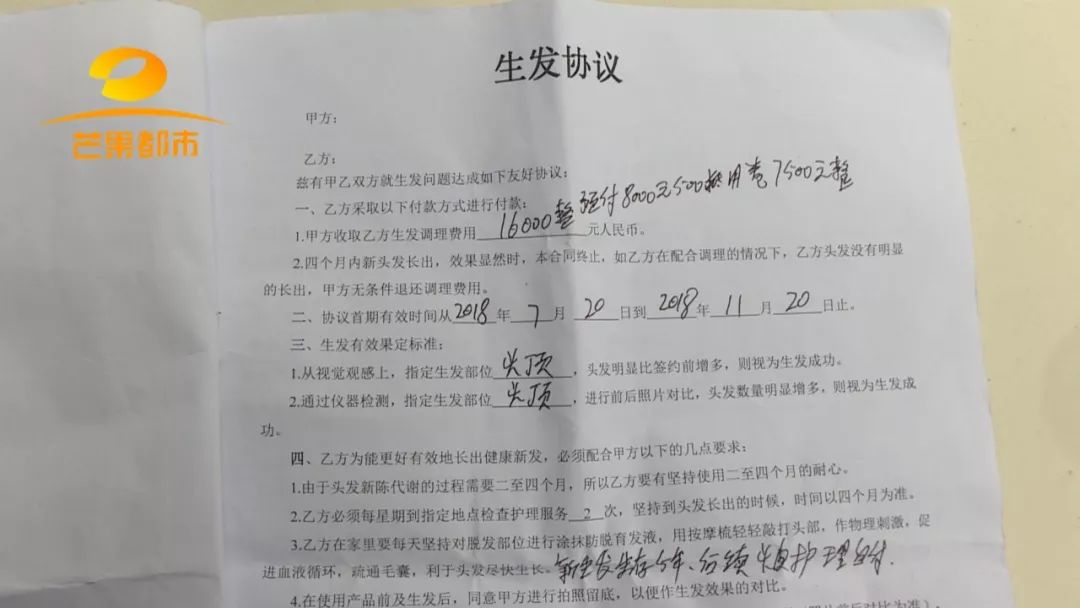 芒果都市
生发协议
甲方：
乙方：
兹有甲乙双方就生发问题达成如下友好协议：
一、乙方采取以下付款方式进行付款：
1.甲方收取乙方生发调理费用 16000整 元人民币。 预付8000元 500 用 7500元整
2.四个月内新头发长出，效果显然时，本合同终止，如乙方在配合调理的情况下，乙方头发没有明显
的长出，甲方无条件退还调理费用。
二、协议首期有效时间从2018年7月20日到2018年11月20日止。
三、生发有效果定标准：
1.从视觉观感上，指定生发部位 头顶 ，头发明显比签约前增多，则视为生发成功。
2.通过仪器检测，指定生发部位 头顶 ，进行前后照片对比，头发数量明显增多，则视为生发成
功。
四、乙方为能更好有效地长出健康新发，必须配合甲方以下的几点要求：
1.由于头发新陈代谢的过程需要二至四个月，所以乙方要有坚持使用二至四个月的耐心。
2.乙方必须每星期到指定地点检查护理服务 2 次，坚持到头发长出的时候，时间以四个月为准。
3.乙方在家里要每天坚持对脱发部位进行涂抹防脱育发液，用按摩梳轻轻敲打头部，作物理刺激，促
进血液循环，疏通毛囊，利于头发尽快生长。 后续 护理
4.在使用产品前及生发后，同意甲方进行拍照留底，以便作生发效果的对比。